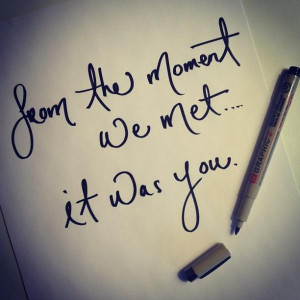 from the moment
we met....
it was you.
GRAPHIC